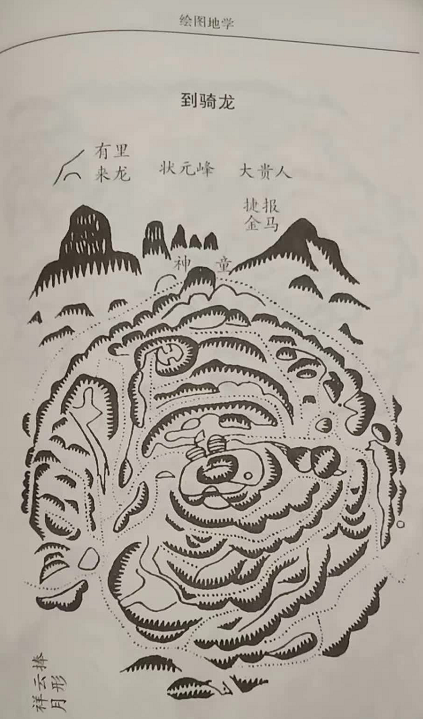 绘图地学
到骑龙
有里
来龙
状元峰
大贵人
捷报
金马
神童
祥云捧
月形